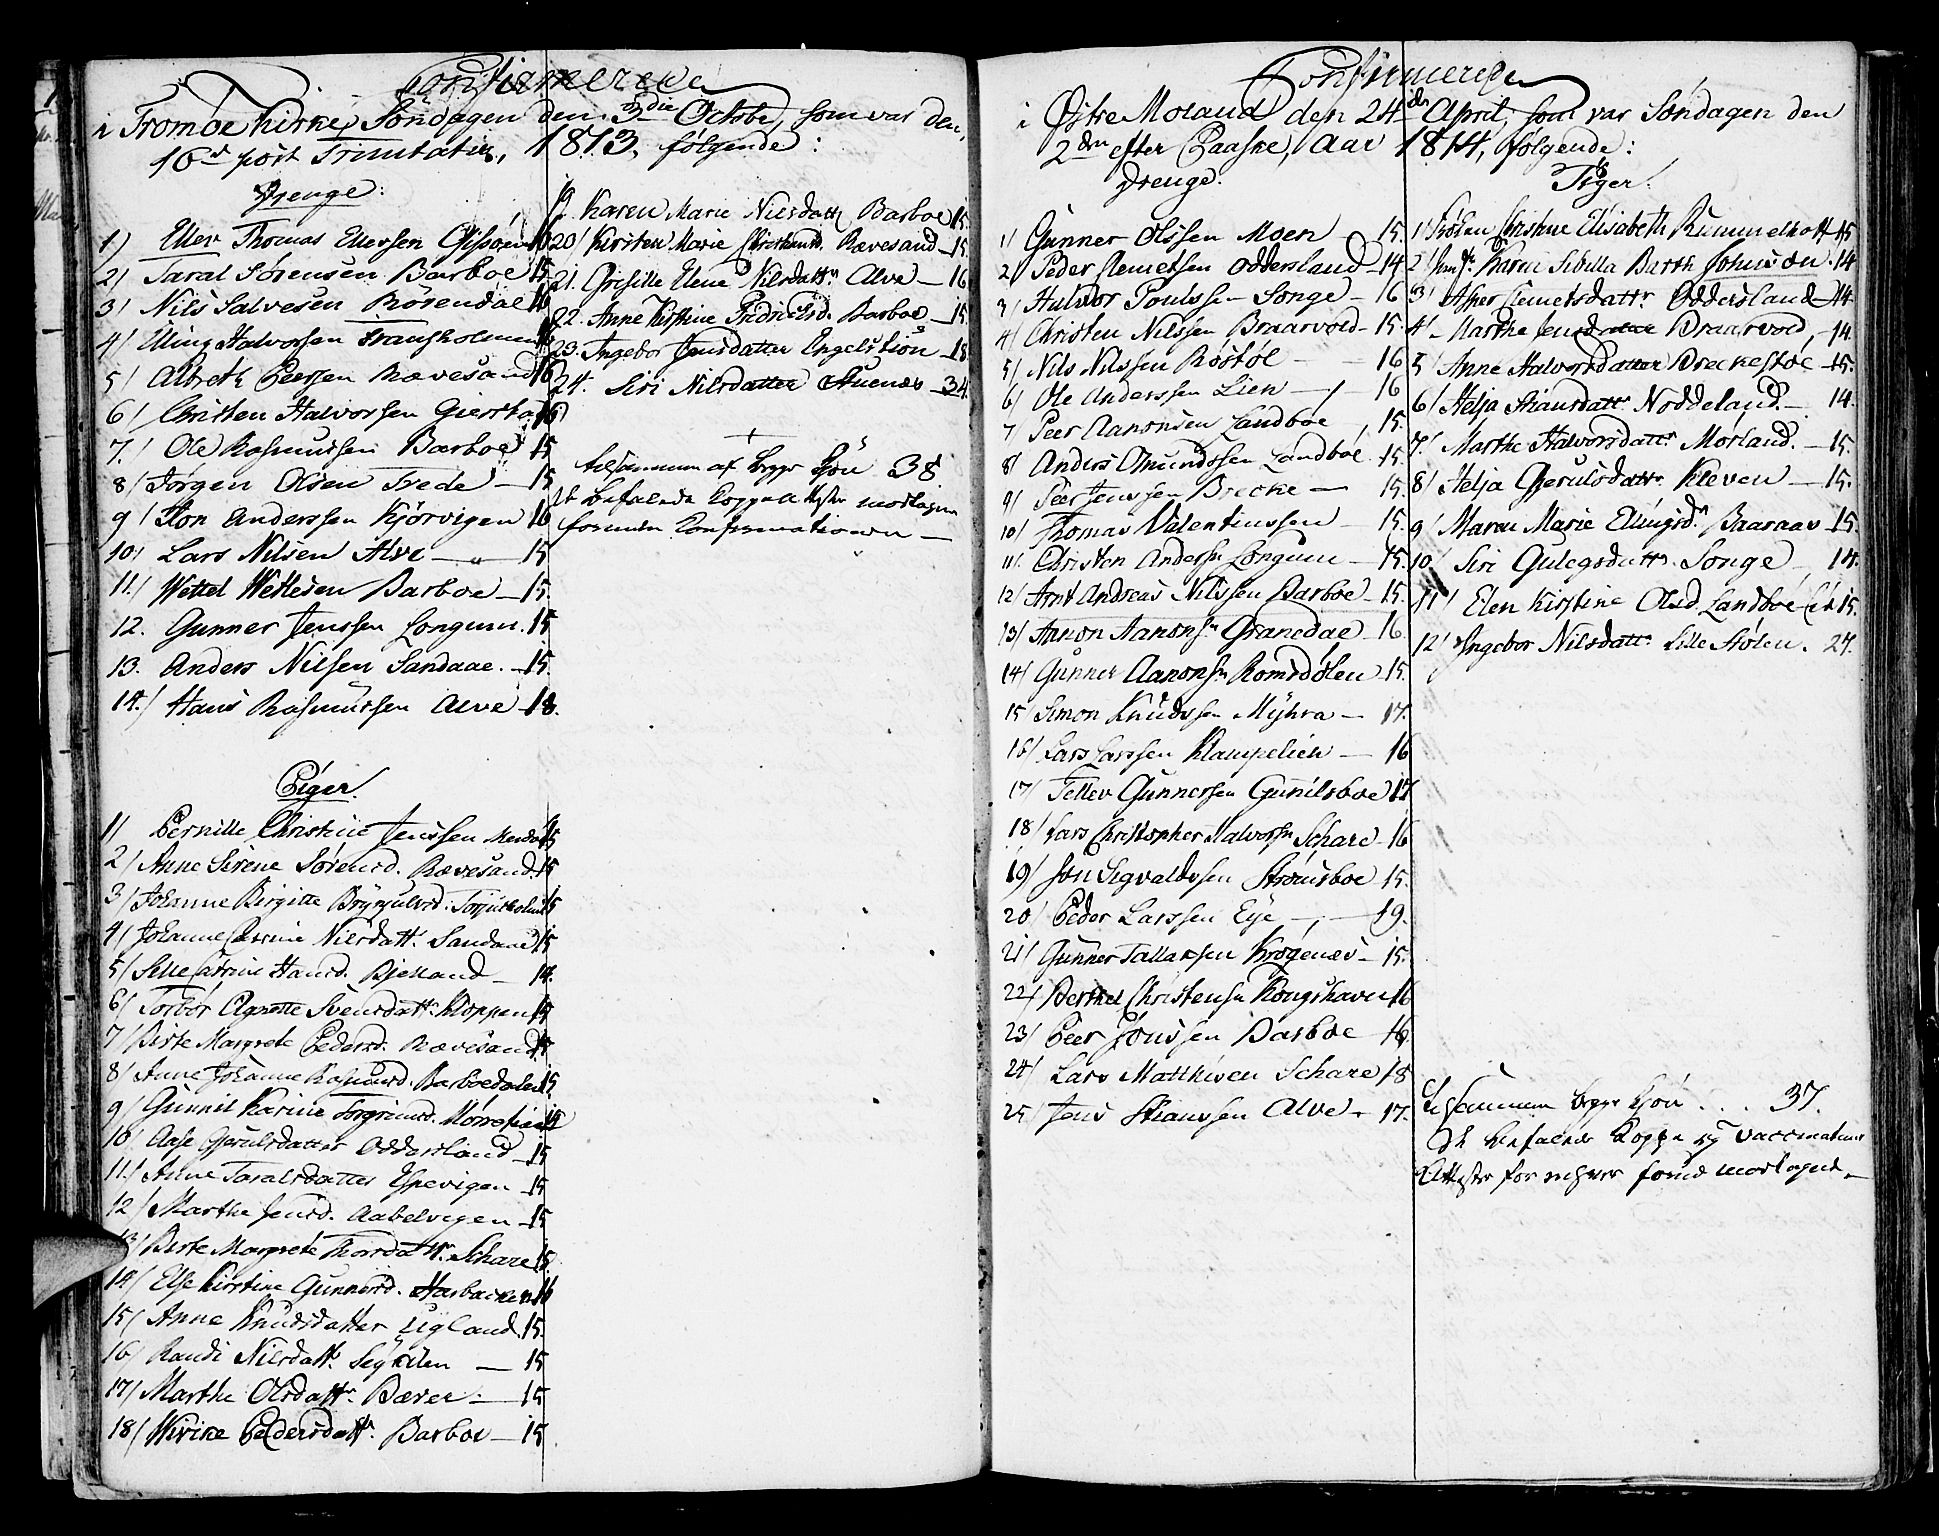 Confirmerede
i Tromøe Kirke, Søndagen den 3die Octobr, som var den
16d post Trinitatis, 1813, følgende:
Drenge:
1) Eller Thomas Ellersen 16
2) Taral Sørensen Barboe 15
3) Nils Salvesen Rørendal 16
4) Elling Halvorsen
5) Albreth Peersen Rævesand 16
6) Christen Halvorsen 16
7.) Ole Rasmussen Barboe 15
8) Jørgen Olsen Trede - 15
9) Jon Anderssen Kjørvigen 16
10) Lars Nilsen Alve - 15
11.) Wettel Wetlesen Barboe - 15.
12. Gunner Jenssen Longum. 15
13. Anders Nilsen Sandaae. - 15.
14.) Hans Rasmussen Alve - 18.
Piger.
1) Pernille Christine Jenssen 15
2) Anne Serene Sørensd. Rævesand. 15
3) Johanne Birgitte 15
4) Johanne Cathrine Nilsdattr. Sandaae 15
5) Sille Cathrine Hansd. Bjelland - 14.
6) Torbor Agnette Svensdattr. Kloppen 15
7) Birte Margrete Pedersd. Rævesand
8) Anne Johanne Rasmusd. Barboedalen 15
9) Gunnil Karine
10) Aase Gjerulsdatter Oddersland - 15
11.) Anne Taralsdatter Espevigen - 15
12) Marthe Jensd. Aabelvigen - 15
13) Birte Margrete Thorsdattr. Schare 15
14) Else Kirstine Gunnersd. Harbacken 16
15) Anne Knudsdatter Ugland. 15.
16) Randi Nilsdattr. - 15
17) Marthe Olsdattr. Bæver - 15
18) Wivike Peddersdattr. Barboe - 15
19. Karen Marie Nilsdattr Barboe 15.
20) Kirsten Marie Christensd. Rævesand - 15.
21. Grisille Elene Nilsdattr. Alve - 16
22. Anne Kirstine Fridrichsd. Barboe - 15.
23. Ingebor Jensdatter Engelstion - 18
24. Siri Nilsdatter Stuenæs - 34.
tilsammen af begge Kjön 38
de befalede Koppe Atester modtagne
forinden Confirmationen -
Confirmerede
i Østre Moland den 24de April, som var Søndagen den
2den efter Paaske, Aar 1814, følgende:
Drenge.
1) Gunner Olssen Moen 15.
2) Peder Clemetsen Oddersland - 14
3) Halvor Poulssen Songe - 16
4) Christen Nilssen Braarvold - 15.
5) Nils Nilssen Røstøl - 16
6) Ole Anderssen Lien - 16
7) Peer Aanonsen Landboe, 15.
8) Anders Omundssen Landboe. 15.
9) Peer Jenssen Brecke - 15.
10) Thomas Valentinssen - 15.
11). Christen Anderssn Longum - 15.
12) Arnt Andreas Nilssen Barboe - 15.
13) Aanon Aanonsn Granedal - 16.
14) Gunner Aanonsn Romsdølen - 15.
15) Simon Knudssen Myhra - 17.
16) Lars Larssen Klampelien - 16
17) Tellev Gunnersen Gunilsboe 17
18) Lars Christopher Halvorsn Schare - 16
19) Jon Sigvaldssen Strømsboe 15.
20) Peder Larssen Eye - 19.
21) Gunner Tallaksen Krogenæs - 15.
22) Berthel Christensn Kongshavn 16
23) Peer Jonssen Barboe - 16.
24) Lars Matthisen Schare 18
25) Jens Stianssen Alve - 17.
Piger.
1) Frøken Christine Elisabeth Rummelhoff 15
2) Jomfr. Karen Sibilla Barth Johnson. 14
3) Asper Clemetsdattr Oddersland 14.
4) - Marthe Jensdatter Braarvold, - 14.
5) Anne Halvorsdatter Breckestøe - 15.
6) Helja Stiansdattr. Noddeland. - 14.
7.) Marthe Halvorsdattr Morland. - 15.
8) Helja Gjerulsdattr. Kleven - 15.
9) Maren Marie Ellingsd. Baaraas - 15.
10) Siri Gulegsdattr. Songe - 14.
11) Elen Kirstine Olsd. Landboe 15.
12) Ingebor Nilsdattr. Lille Stølen. 27.
tilsammen begge Kjön ... 37.
de befalede Koppe og vaccinations
Attester for enhver forud modtaget -